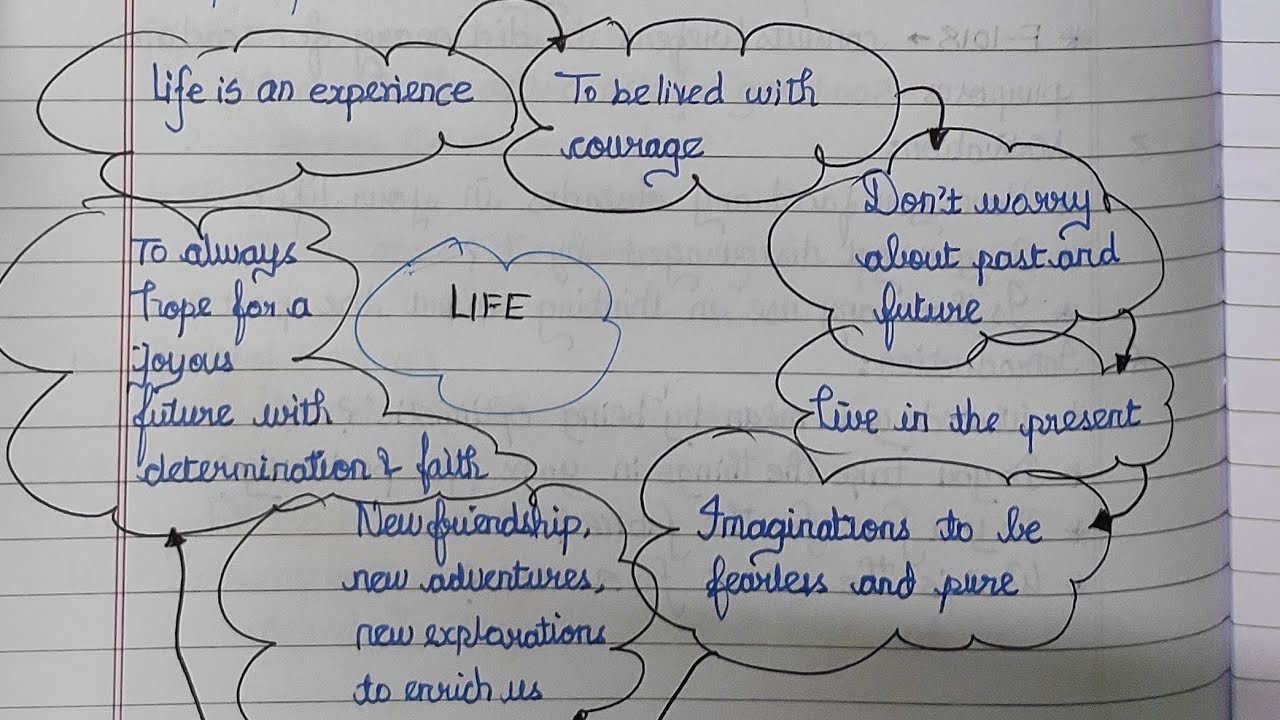 Life is an experience
To be lived with
courage
Don't worry
about past and
future
Live in the present
Imaginations to be
fearless and pure
New friendship,
new adventures,
new explorations
to enrich us
To always
hope for a
joyous
future with
determination & faith
LIFE